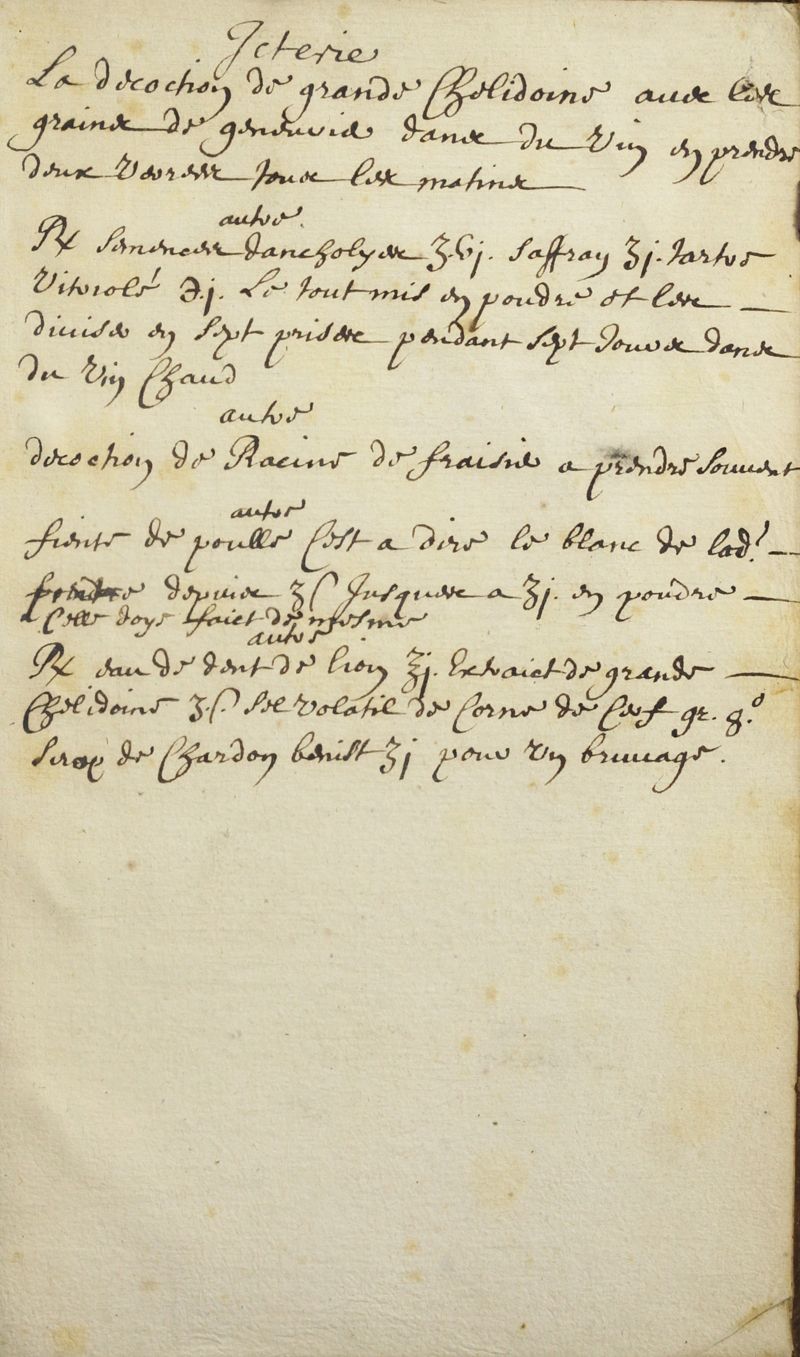 Icterie
La decoction de grande Chelidoine avec les
graines de genevrie dans du Vin en prendre
deux Verres tous les matins
autre.
℞ semences dancholyes ʒ.vj. saffran ʒj. tartre
Vitriolé ℈.j. Le tout mis en poudre et les
divise en sept prises pendant sept Jours dans
du Vin Chaud
autre
decoction de Racine de fraisie a prendre souvent
autre
fiente de poulle Cest a dire le blanc de lad.
depuis ʒß Jusques a ʒj. en poudre
Celle doye faict de mesme
autre
℞ eau de dent de lion ℥j. Extraict de grande
Chelidoine ʒ.ß. sel volatil de Corne de Cerf gr. 8.
sirop de Chardon benist ℥j pour Un bruvage.